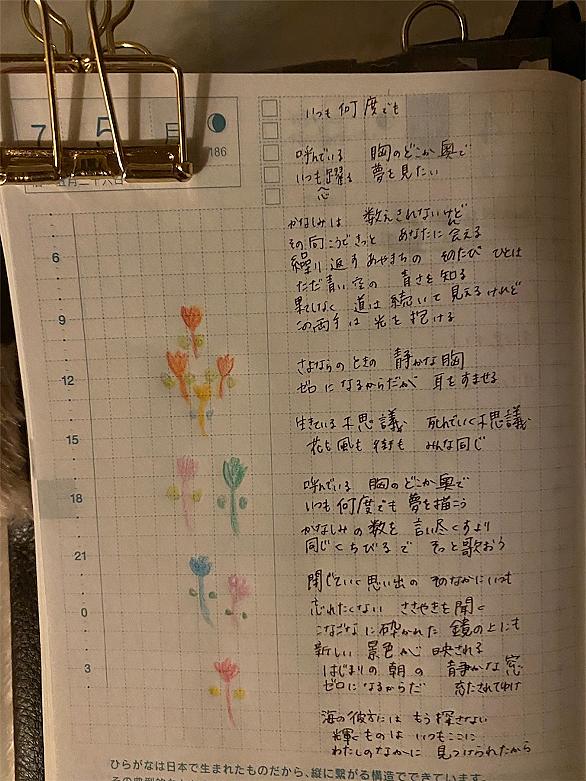 7
5
月
186
いつも何度でも
呼んでいる 胸のどこか奥で
いつも躍る 夢を見たい
心
かなしみは 数えきれないけど
その向こうできっと あなたに会える
繰り返すあやまちの そのたび ひとは
ただ青い空の 青さを知る
果てしなく 道は続いて見えるけれど
この両手は 光を抱ける
さよならのときの 静かな胸
ゼロになるからだが 耳をすませる
生きている不思議 死んでいく不思議
花も風も街も みんな同じ
呼んでいる 胸のどこか奥で
いつも何度でも 夢を描こう
かなしみの数を 言い尽くすより
同じくちびるで そっと歌おう
閉じていく思い出の そのなかにいつも
忘れたくない ささやきを聞く
こなごなに砕かれた 鏡の上にも
新しい 景色が 映される
はじまりの朝の 静かな窓
ゼロになるからだ 充たされてゆけ
海の彼方には もう探さない
輝くものは いつもここに
わたしのなかに 見つけられたから
6
9
12
15
18
21
0
3
ひらがなは日本で生まれたものだから、縦に繋がる構造でできています。